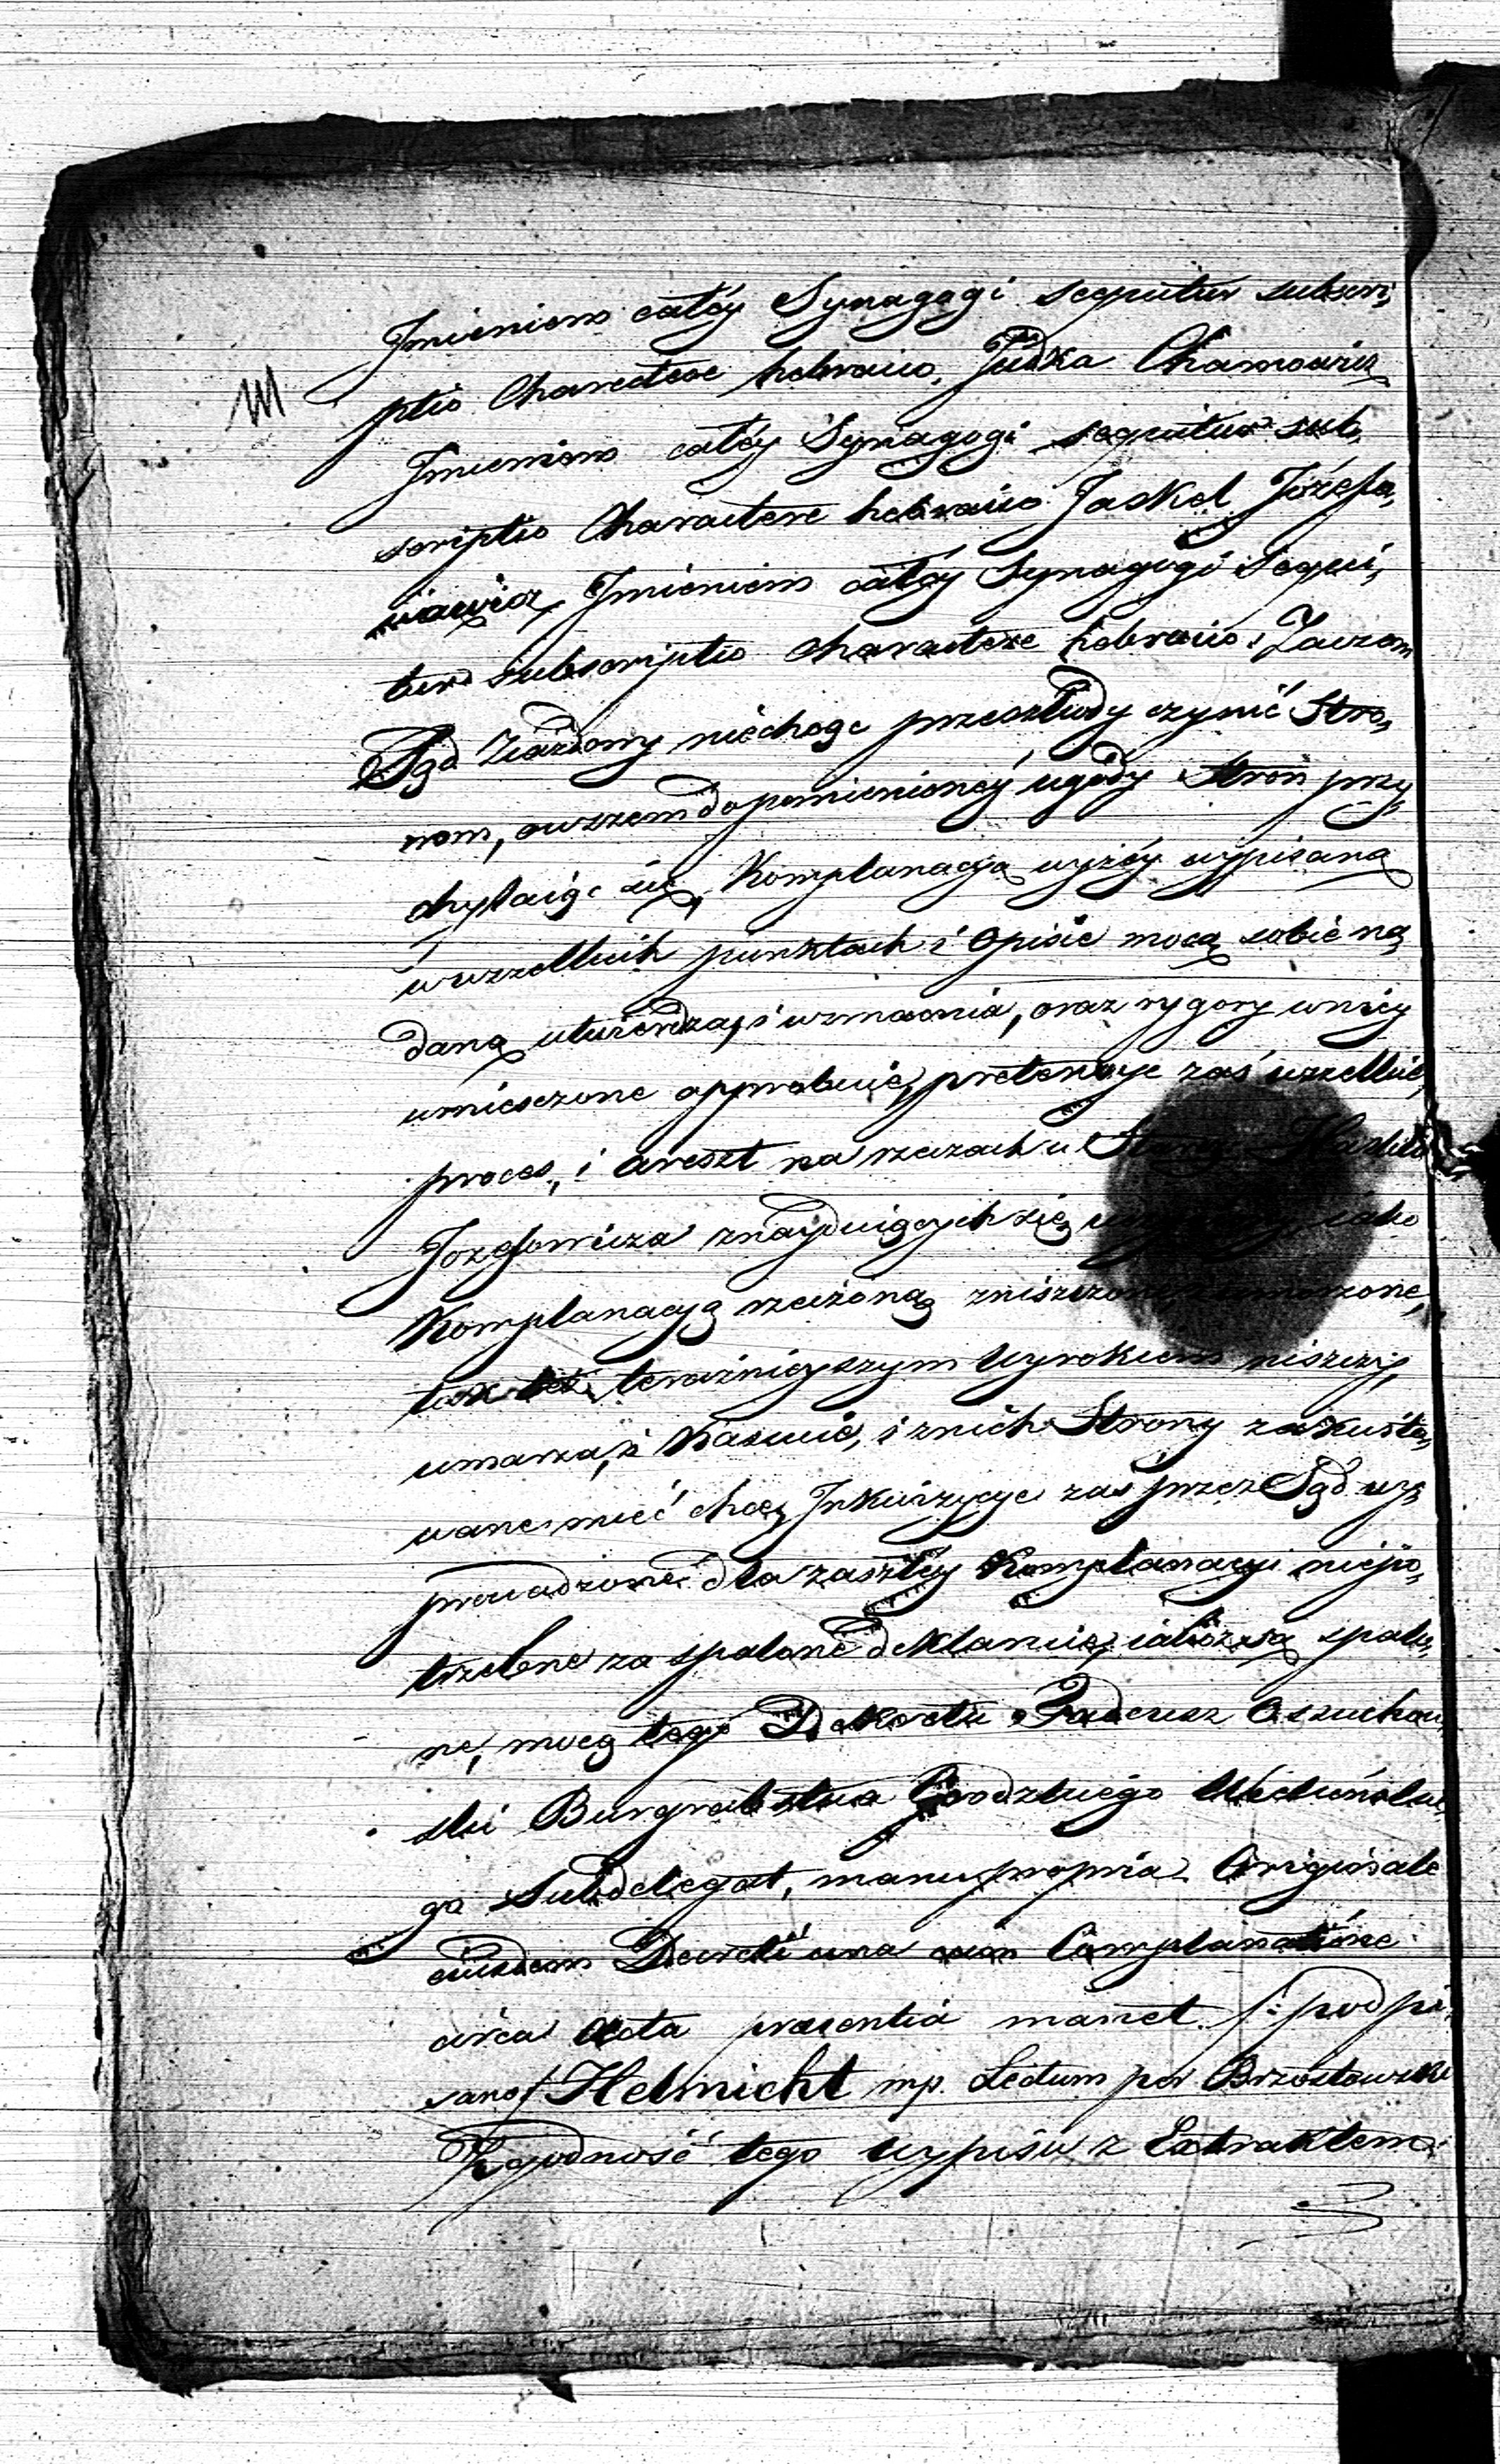 Imieniem całéy Synagogi sequitur subscri,
ptio Charectere hebraico. Judka Chamowicz
Imieniem całéy Synagogi sequitur sub,
scriptio Charactere hebraico Jaskel Józefo,
wicz, Imieniem całéy Synagogi Sequi,
tur subscriptio charactere hebraico. Zaczem
Sąd Ziazdowy niechcąc przeszkody czynić Stro,
nom, owszem do pomienionéy ugody Stron przy,
chylaiąc się, Komplanacyą wyżéy wypisaną
w wszelkich punktach i Opisie mocą sobie na
daną utwierdza, i wzmacnia, oraz rygory wniéy
umieszczone approbuie, pretensye zaś wszelkie,
proces, i areszt na rzeczach u
Jozefowicza znayduiących się iako
Komplanacyą rzeczoną zniszczone, umorzone,
tak też teraznieyszym Wyrokiem niszczy,
umarza, i Kassuie, i znich Strony zakwito,
wane mieć chce, Inkwizycye zaś przez Sąd wy,
prowadzone dla zaszłéy Komplanacyi niepo,
trzebne za spalone deklaruie, iakoż są spalo,
ne, mocą tego Dekretu. Tadeusz Osuchow,
ski Burgrabstwa Grodzkiego Wieluńskie,
go Subdelegat, manu propria. Originale
eiusdem Decreti una cum Complanatione
circa Acta praesentia manet. /: podpi,
sano/ Helmicht mp. Lectum per Brzostowski
Zgodność tego wypisu z Extraktem